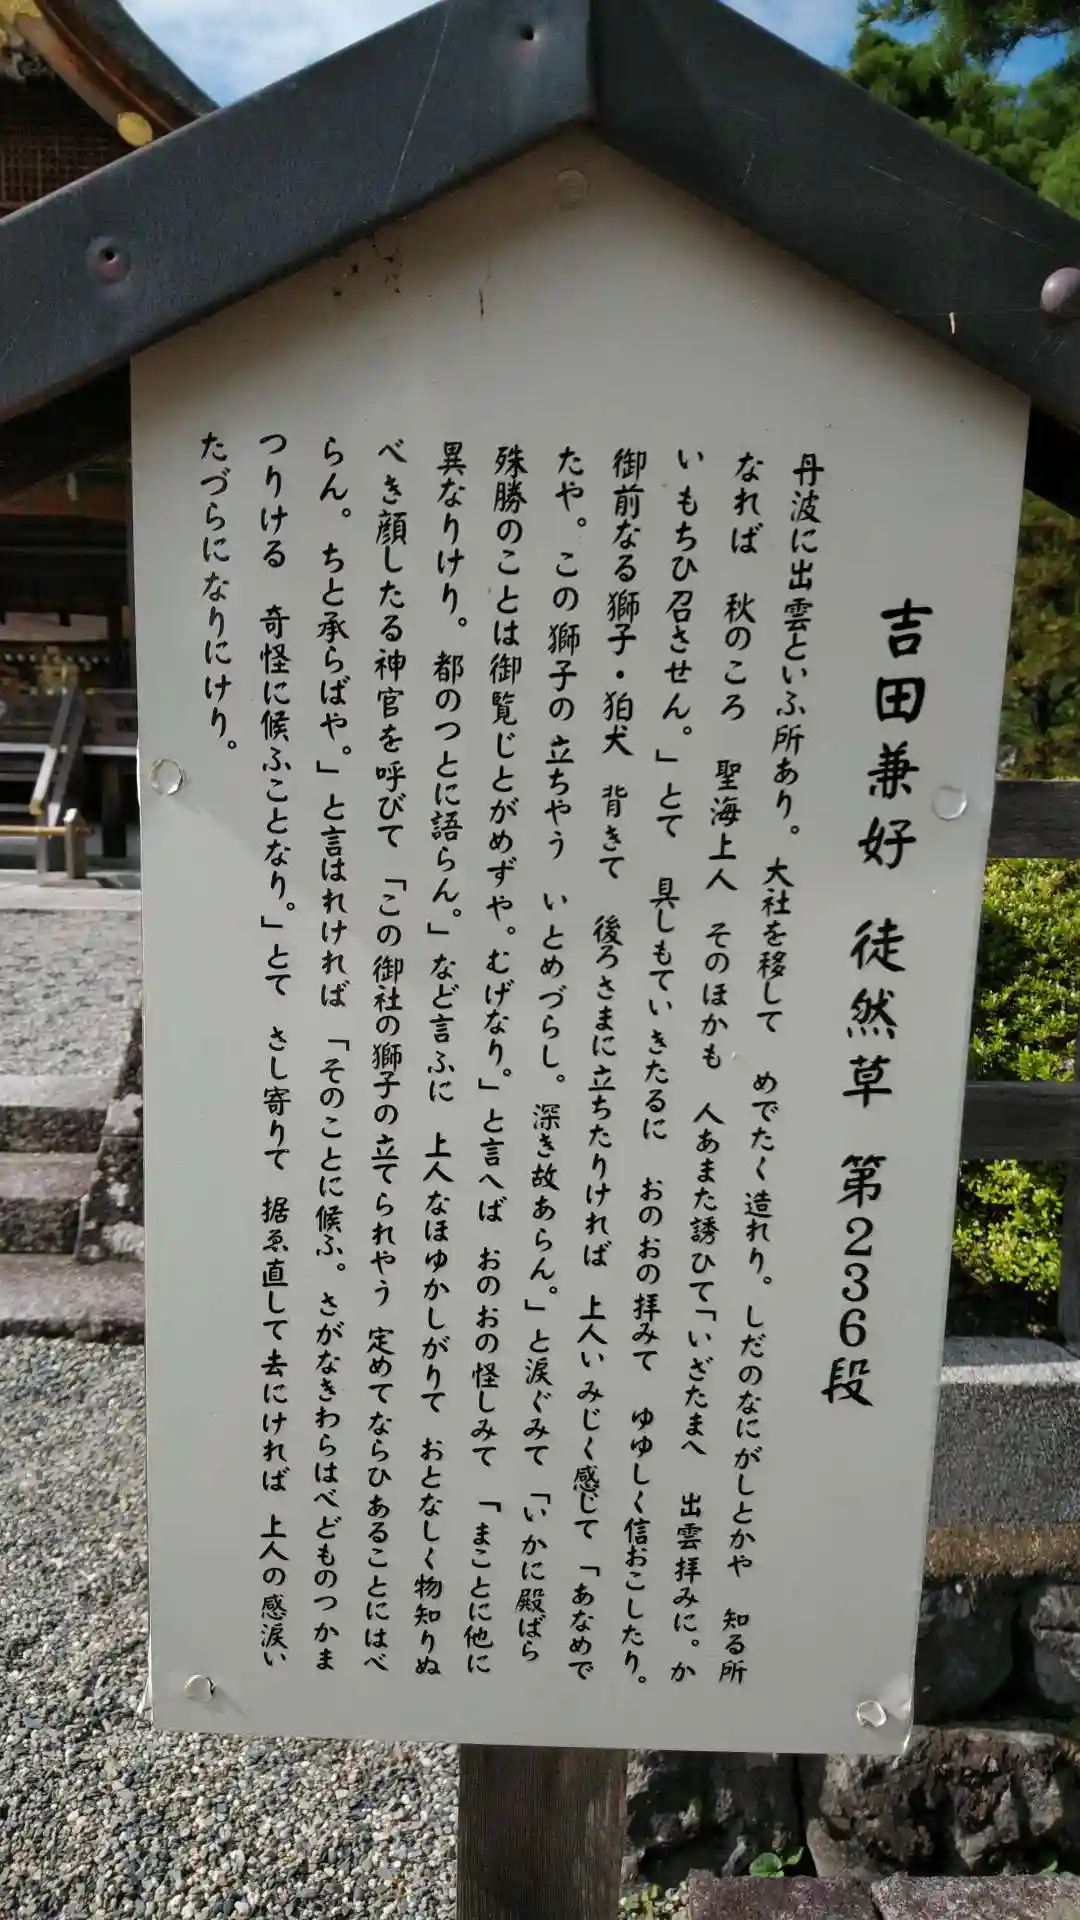 吉田兼好 徒然草 第236段
丹波に出雲といふ所あり。 大社を移して めでたく造れり。しだのなにがしとかや 知る所
なれば 秋のころ 聖海上人 そのほかも 人あまた誘ひて「いざたまへ 出雲拝みに。か
いもちひ召させん。」とて 具しもていきたるに おのおの拝みて ゆゆしく信おこしたり。
御前なる獅子・狛犬 背きて 後ろさまに立ちたりければ 上人いみじく感じて「あなめで
たや。この獅子の立ちやう いとめづらし。 深き故あらん。」と涙ぐみて「いかに殿ばら
殊勝のことは御覧じとがめずや。むげなり。」と言へば おのおの怪しみて 「まことに他に
異なりけり。 都のつとに語らん。」など言ふに 上人なほゆかしがりて おとなしく物知りぬ
べき顔したる神官を呼びて 「この御社の獅子の立てられやう 定めてならひあることにはべ
らん。 ちと承らばや。」と言はれければ 「そのことに候ふ。さがなきわらはべどものつかま
つりける 奇怪に候ふことなり。」とて さし寄りて 据ゑ直して去にければ 上人の感涙い
たづらになりにけり。